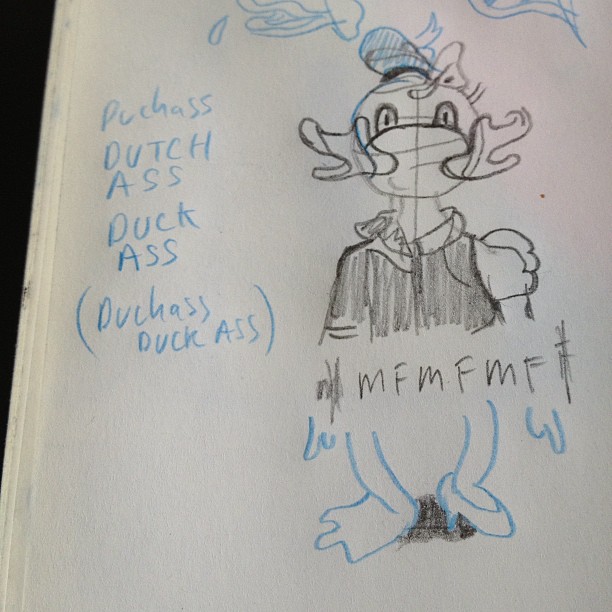 Duchass
DUTCH
ASS
DUCK
ASS
(Duchass
DUCK ASS)
MFMFMF